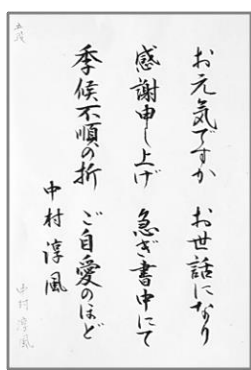 お元気ですか　お世話になり
感謝申し上げ　急ぎ書中にて
季候不順の折　ご自愛のほど
中村淳風
中村淳風